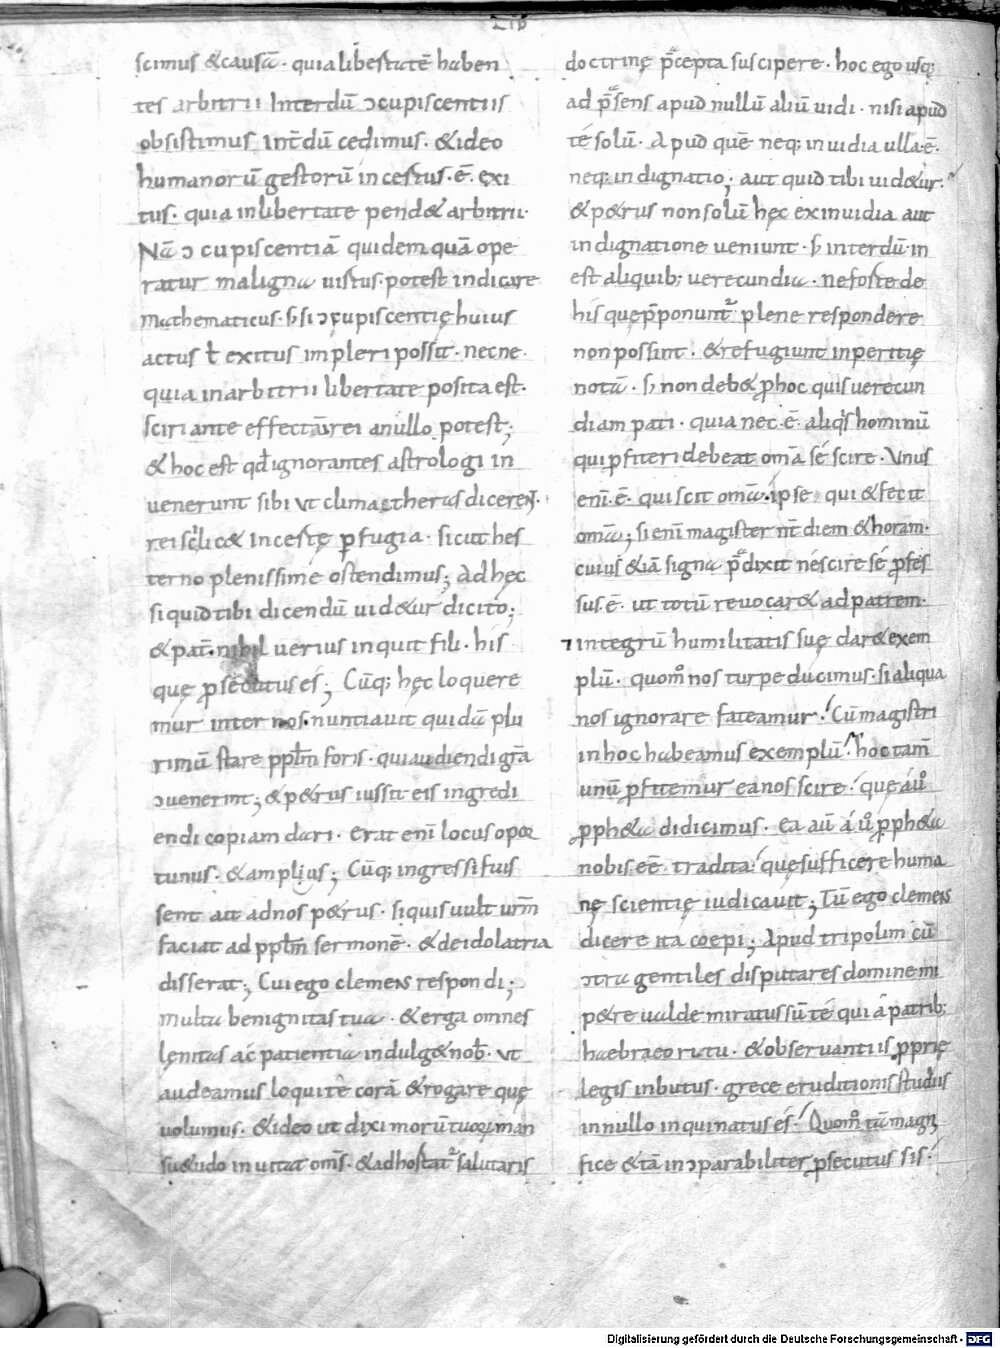 LIB
scimus &causā· quia libertatē haben
tes arbitrii Interdū ɔcupiscentiis
obsistimus Int̄dū cedimus· &ideo
humanorū gestorū incestus·ē· exi
tus· quia inlibertate pend& arbitrii·
Nā ɔcupiscentiā quidem quā ope
ratur maligna uistus· potest indicare
mathematicus· s̄ si ɔcupiscentię huius
actus ł exitus impleri possit· necne·
quia inarbitrii libertate posita est·
sciri ante effectū rei anullo potest;
& hoc est qđ ignorantes astrologi in
uenerunt sibi ut climactheras dicerent·
rei incestę perfugia· sicut hes
terno plenissime ostendimus; Ad hęc
siquid tibi dicendū uid&ur dicito;
& pat̄· nihil uerius inquit fili· his
que ꝑsecutus és; Cūq; hęc loquere
mur inter nos· nuntiauit quidā plu
rimū stare ppłm foris· qui audiendi gr̄a
ɔuenerint; & p&rus iussit eis ingredi
endi copiam dari· Erat eni locus opor
tunus· &amplius; Cūq; ingressi fuis
sent ait adnos p&rus· siquis uult urm̄
faciat ad ppłm sermonē· & deidolatria
disserat; Cui ego clemens respondi;
multa benignitas tua· & erga omnes
lęnitas ac patientia indulg& nob̄· ut
audeamus loqui te corā & rogare quę
volumus· &ideo ut dixi morū tuoꝝ man
su&udo inuitat om̄s· &adhortat̃ salutaris
doctrinę p̄cepta suscipere· hoc ego usq;
ad p̄sens apud nullū aliū uidi· nisi apud
té solū· Apud quē neq; inuidia ulla·ē·
neq; indignatio; aut quid tibi uid&ur·
& p&rus non solū hęc exinuidia aut
indignatione ueniunt· s̄ interdū·in
est aliquib; uerecundia· ne forte de
his que p̄ponunt̃ plene respondere
non possint· & refugiunt inperitię
notā· s̄ non deb& ꝑ hoc quis uerecun
diam pati· quia nec·ē· aliq̇s hominū
qui ꝓfiteri debeat om̄ā sé scire· Unus
eni·ē· qui scit om̄a· ipse qui & fecit
om̄a; si eni magister nr̄ diem & horam·
cuius &iā signa p̄dixit néscire sé ꝓfes
sus·ē· ut totū reuocar& ad patrem·
⁊ integrū humilitatis suę dar& exem
plū· quom̊ nos turpe ducimus· si aliqua
nos ignorare fateamur· Cū magistri
in hoc habeamus exemplū· hoc tam̄
unū ꝓfitemur ea nos scire· que á ůo
ꝓph&a didicimus· Ea aū á ůo ꝓph&a
nobis eē tradita· que sufficere huma
nę scientię iudicauit; Tū ego clemens
dicere ita coepi; Apud tripolim cū
ɔtra gentiles disputares domine mi
p&re ualde miratus sū té qui á patrib;
haebraeo ritu· & obseruantiis ꝓprię
legis inbutus· grece eruditionis studiis
in nullo inquinatus és· Quom̊ tā magni
fice & tā inɔparabiliter ꝑsecutus sis·
Digitalisierung gefördert durch die Deutsche Forschungsgemeinschaft - DFG